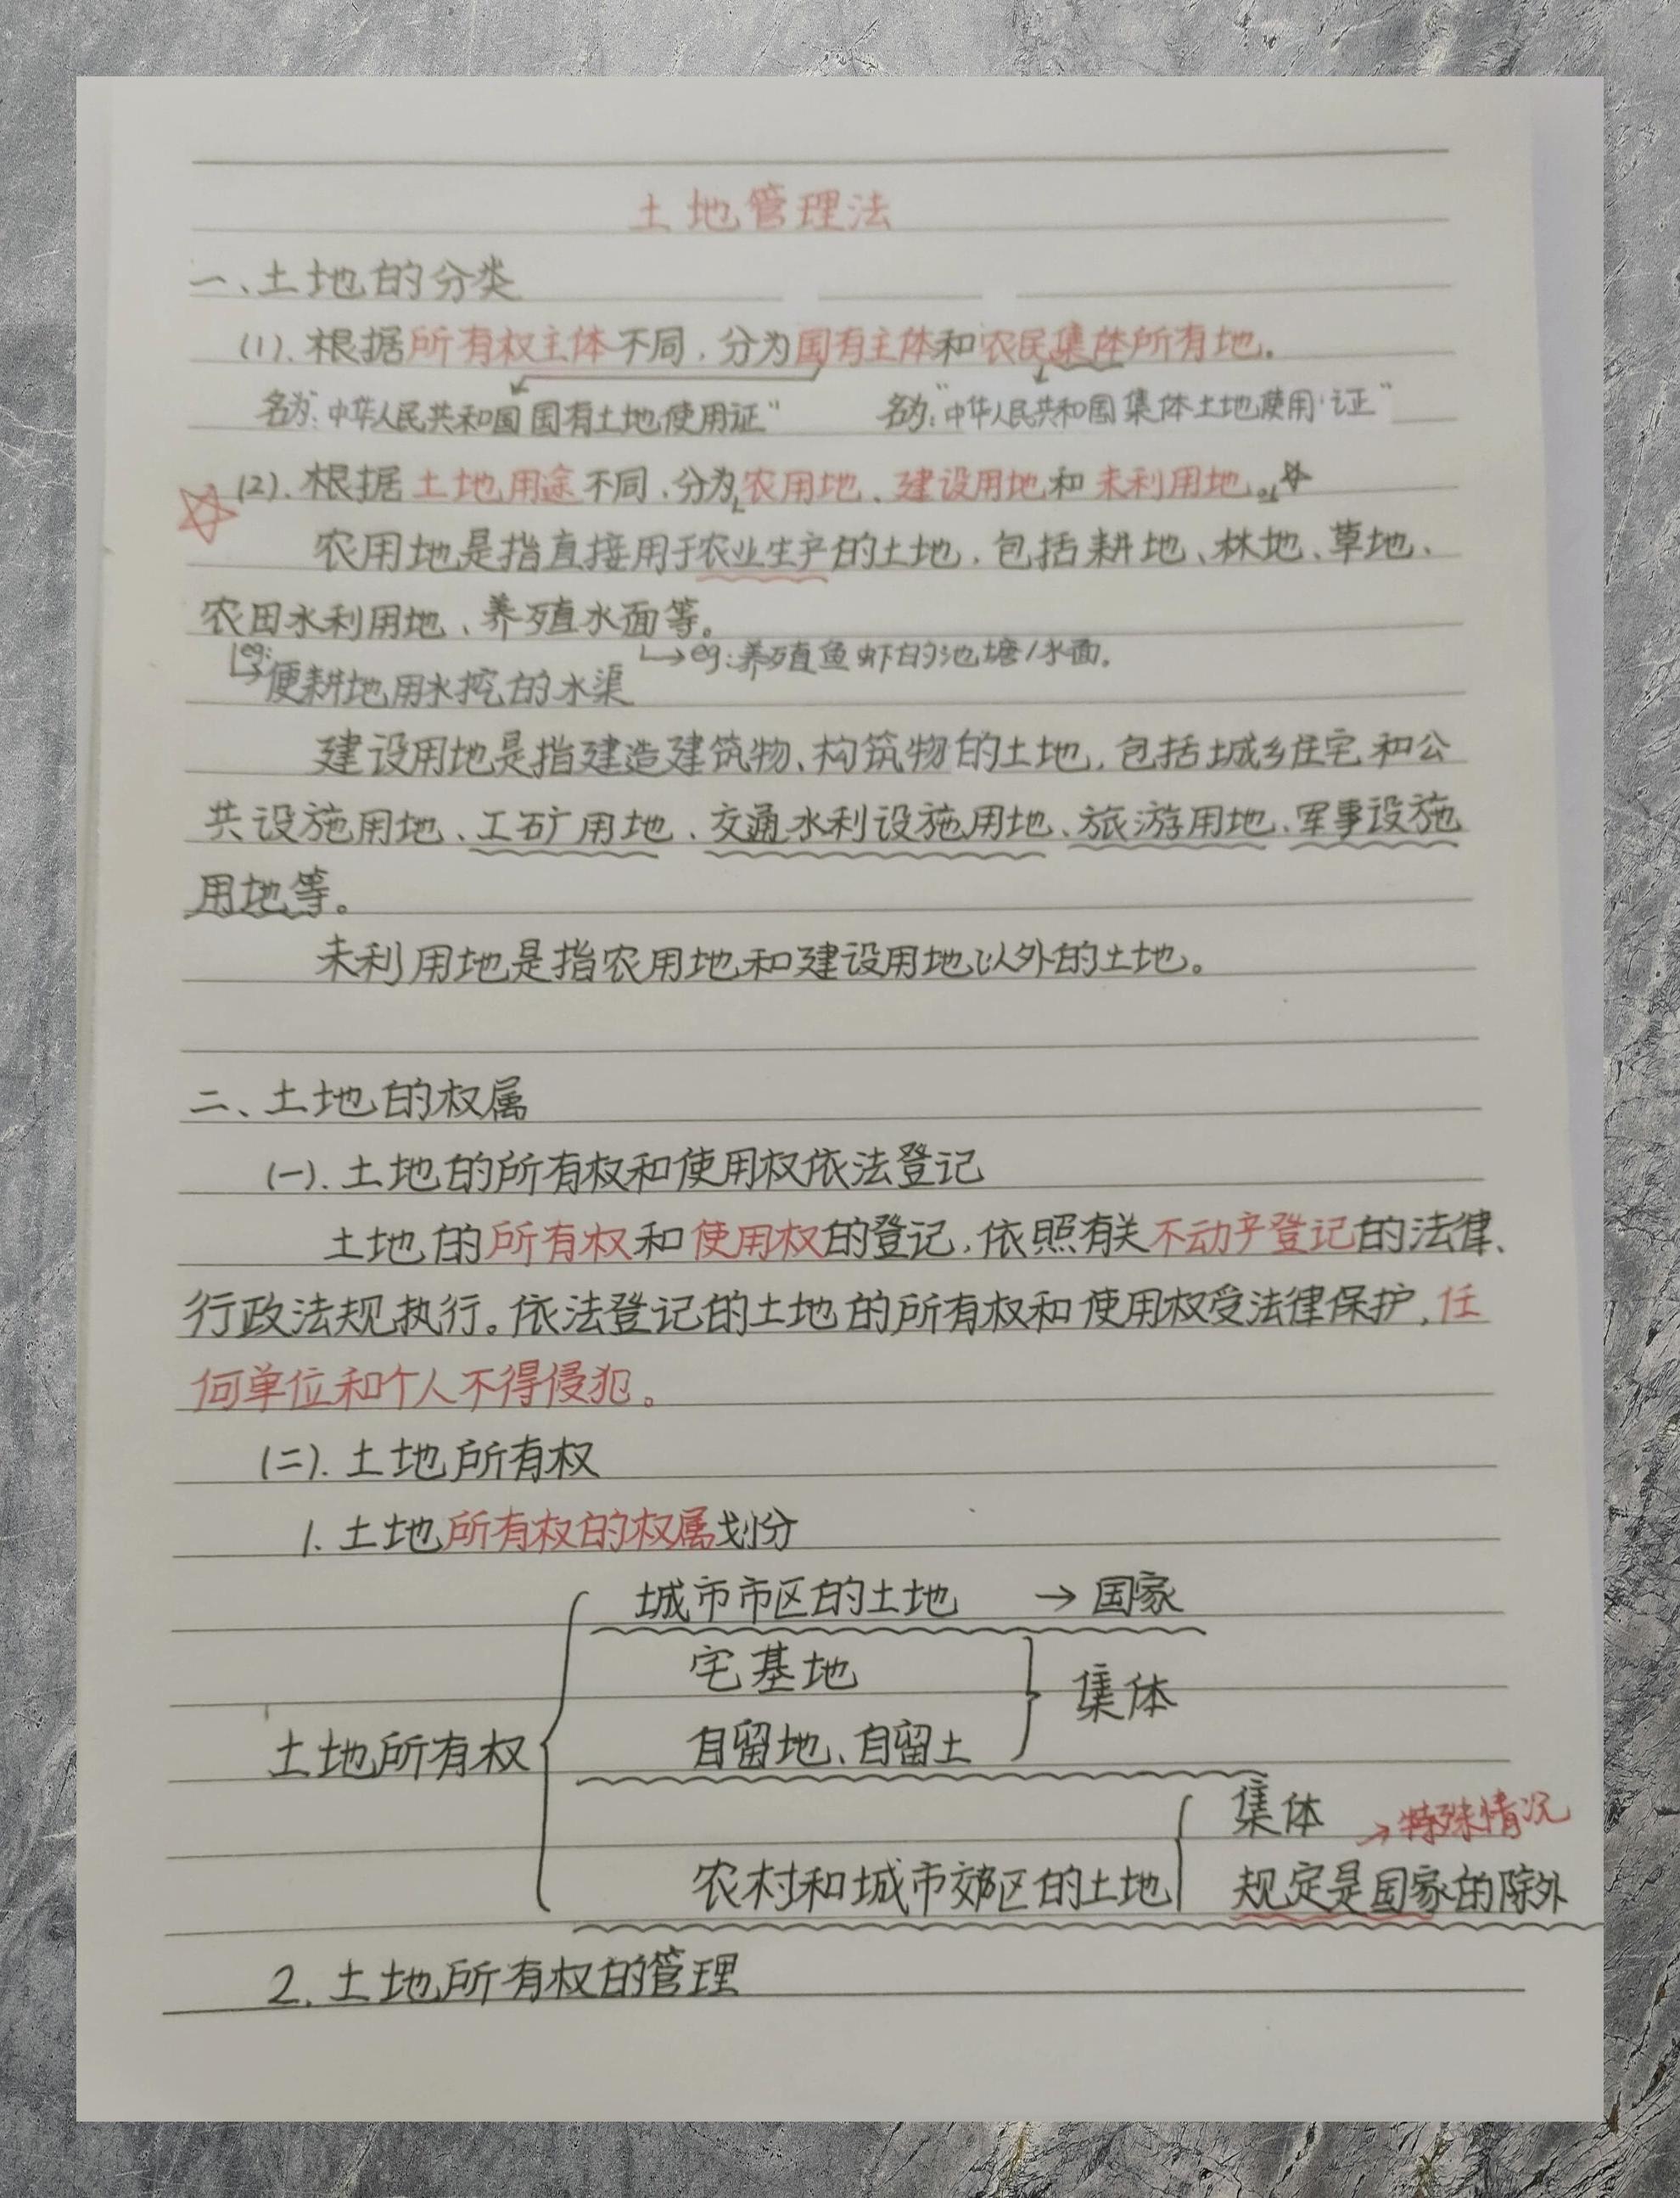 土地管理法
一、土地的分类
(1). 根据所有权主体不同，分为国有主体和农民集体所有地。
名为："中华人民共和国国有土地使用证" 名为："中华人民共和国集体土地使用证"
(2). 根据土地用途不同，分为农用地、建设用地和未利用地。
农用地是指直接用于农业生产的土地，包括耕地、林地、草地、
农田水利用地、养殖水面等。
eg: →eg:养殖鱼虾的池塘/水面。
便耕地用水挖的水渠
建设用地是指建造建筑物、构筑物的土地，包括城乡住宅和公
共设施用地、工矿用地、交通水利设施用地、旅游用地、军事设施
用地等。
未利用地是指农用地和建设用地以外的土地。
二、土地的权属
(一). 土地的所有权和使用权依法登记
土地的所有权和使用权的登记，依照有关不动产登记的法律、
行政法规执行。依法登记的土地的所有权和使用权受法律保护，任
何单位和个人不得侵犯。
(二). 土地所有权
1. 土地所有权的权属划分
城市市区的土地 → 国家
宅基地
集体
自留地、自留土
土地所有权
集体 →特殊情况
农村和城市郊区的土地 规定是国家的除外
2. 土地所有权的管理